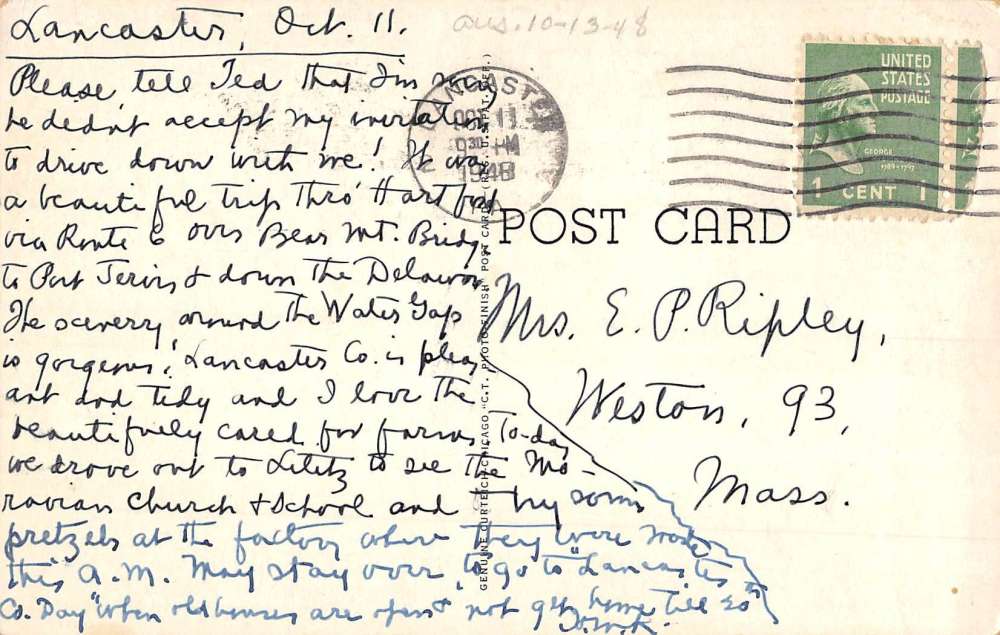 Lancaster, Oct. 11.
ans. 10-13-48
Please tell Ted that I'm sorry
he didn't accept my invitation
to drive down with me! It was
a beautiful trip thro' Hartford
via Route 6 over Bear Mt. Bridge
to Port Jervis & down the Delaware.
The scenery around the Water Gap
is gorgeous! Lancaster Co. is pleas
ant and tidy and I love the
beautifully cared for farms. To-day
we drove out to Lititz to see the Mo-
ravian Church & School and try some
pretzels at the factory where they were made
this A.M. May stay over to go to "Lancaster
Co. Day" when old houses are open & not get home till 20th
LANCASTER
OCT 11
9 30 PM
1948
PA.
UNITED
STATES
POSTAGE
GEORGE
1789-1797
1 CENT 1
POST CARD
GENUINE CURTEICH-CHICAGO "C.T. PHOTO-FINISH" POST CARD (REG. U.S. PAT. OFF.)
Mrs. E. P. Ripley,
Weston, 93,
Mass.